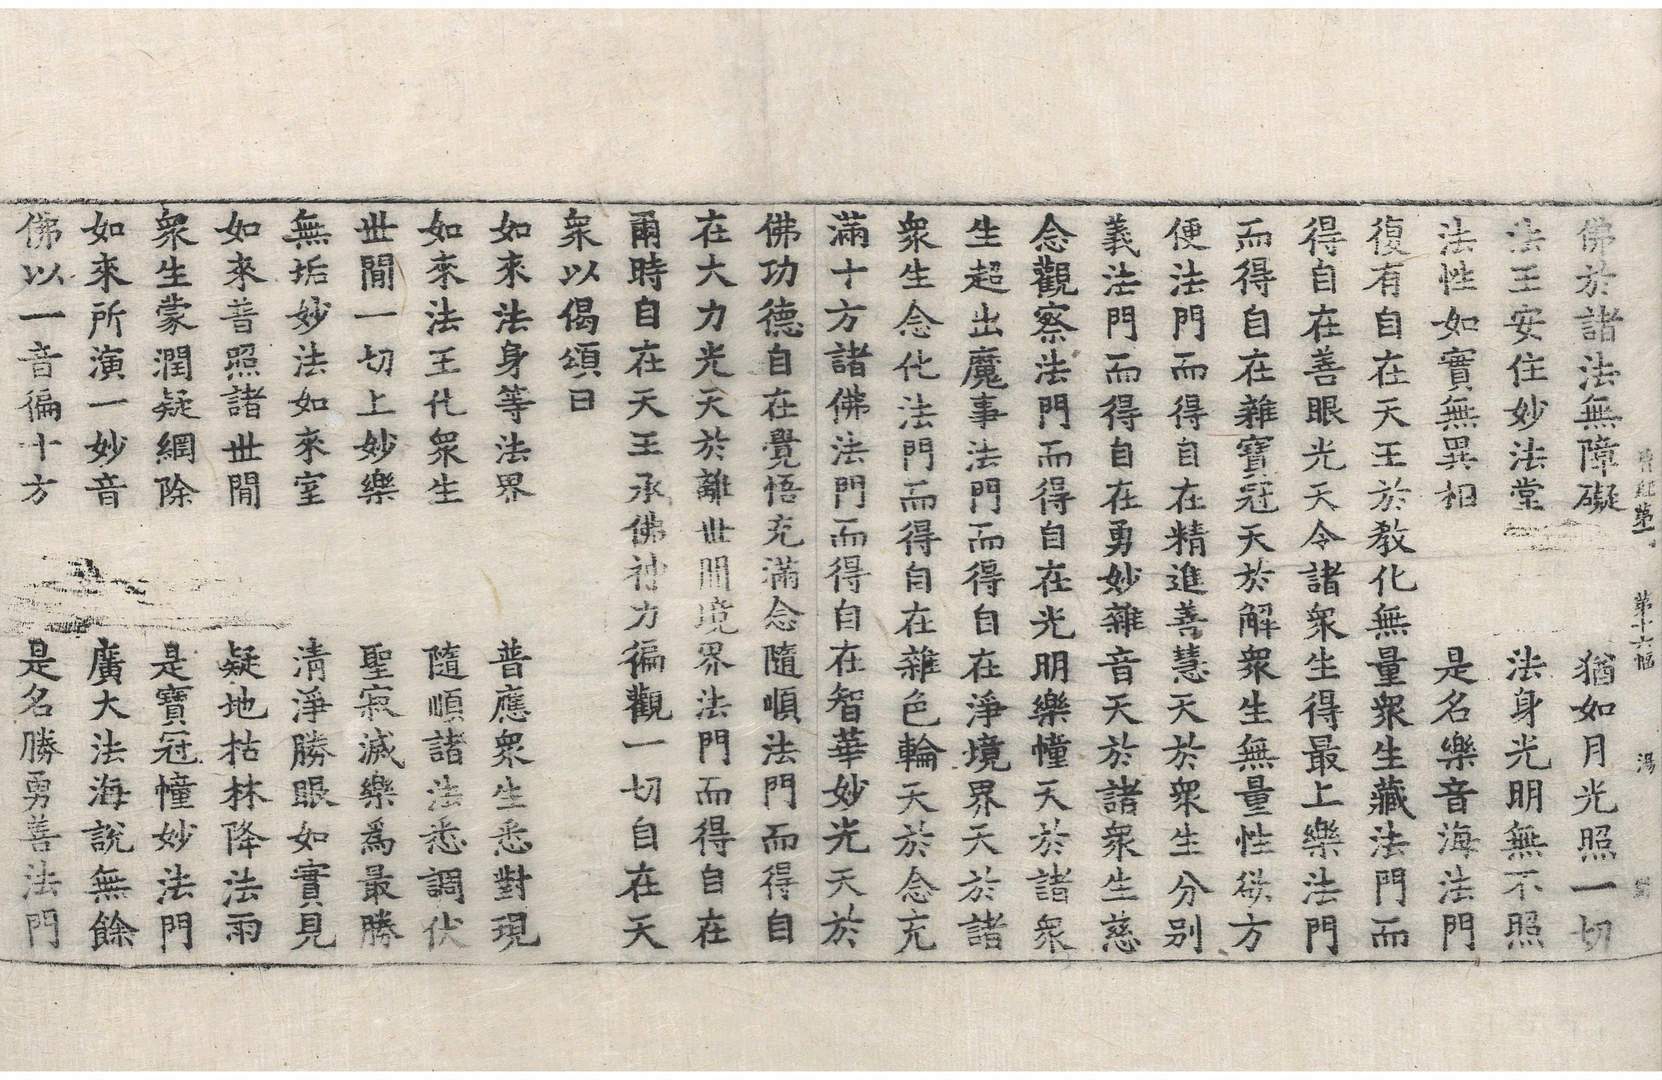 佛於諸法無障礙　猶如月光照一切
法王安住妙法堂　法身光明無不照
法性如實無異相　是名樂音海法門
復有自在天王於教化無量衆生藏法門而
得自在善眼光天令諸衆生得最上樂法門
而得自在雜寶冠天於解衆生無量性欲方
便法門而得自在精進善慧天於衆生分别
義法門而得自在勇妙雜音天於諸衆生慈
念觀察法門而得自在光明樂幢天於諸衆
生超出魔事法門而得自在淨境界天於諸
衆生念化法門而得自在雜色輪天於念充
滿十方諸佛法門而得自在智華妙光天於
佛功德自在覺悟充滿念隨順法門而得自
在大力光天於離世間境界法門而得自在
爾時自在天王承佛神力徧觀一切自在天
衆以偈頌曰
如來法身等法界　普應衆生悉對現
如來法王化衆生　隨順諸法悉調伏
世間一切上妙樂　聖寂滅樂爲最勝
無垢妙法如來室　清淨勝眼如實見
如來普照諸世間　癡地枯林降法雨
衆生蒙潤疑網除　是寶冠幢妙法門
如來所演一妙音　廣大法海説無餘
佛以一音徧十方　是名勝勇善法門
第一　第十六幅　湯